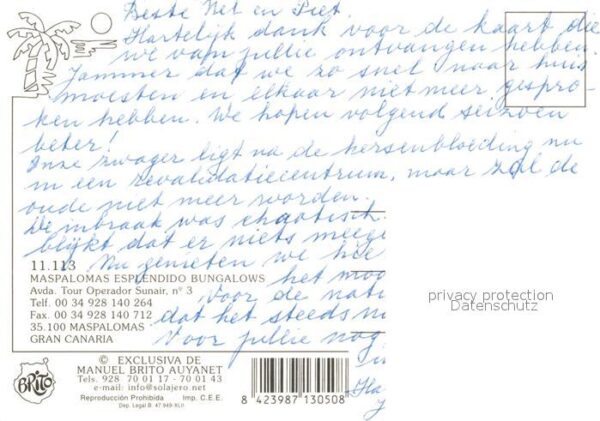 Beste Nel en Piet.
Hartelijk dank voor de kaart die
we van jullie ontvangen hebben.
Jammer dat we zo snel naar huis
moesten en elkaar niet meer gespro-
ken hebben. We hopen volgend seizoen
beter!
Onze zwager ligt na de hersenbloeding nu
in een revalidatiecentrum, maar zal de
oude niet meer worden.
De inbraak was chaotisch
blijkt dat er niets meege
Nu genieten we hie
het moo
voor de natu
dat het steeds
Voor jullie nog
11.113
MASPALOMAS ESPLENDIDO BUNGALOWS
Avda. Tour Operador Sunair, nº 3
Telf. 00 34 928 140 264
Fax. 00 34 928 140 712
35.100 MASPALOMAS
GRAN CANARIA
privacy protection
Datenschutz
BRITO
© EXCLUSIVA DE
MANUEL BRITO AUYANET
Tels. 928 70 01 17 - 70 01 43
e-mail: info@solajero.net
Reproducción Prohibida Imp. C.E.E.
Dep. Legal B. 47.949-XLII
8 423987 130508